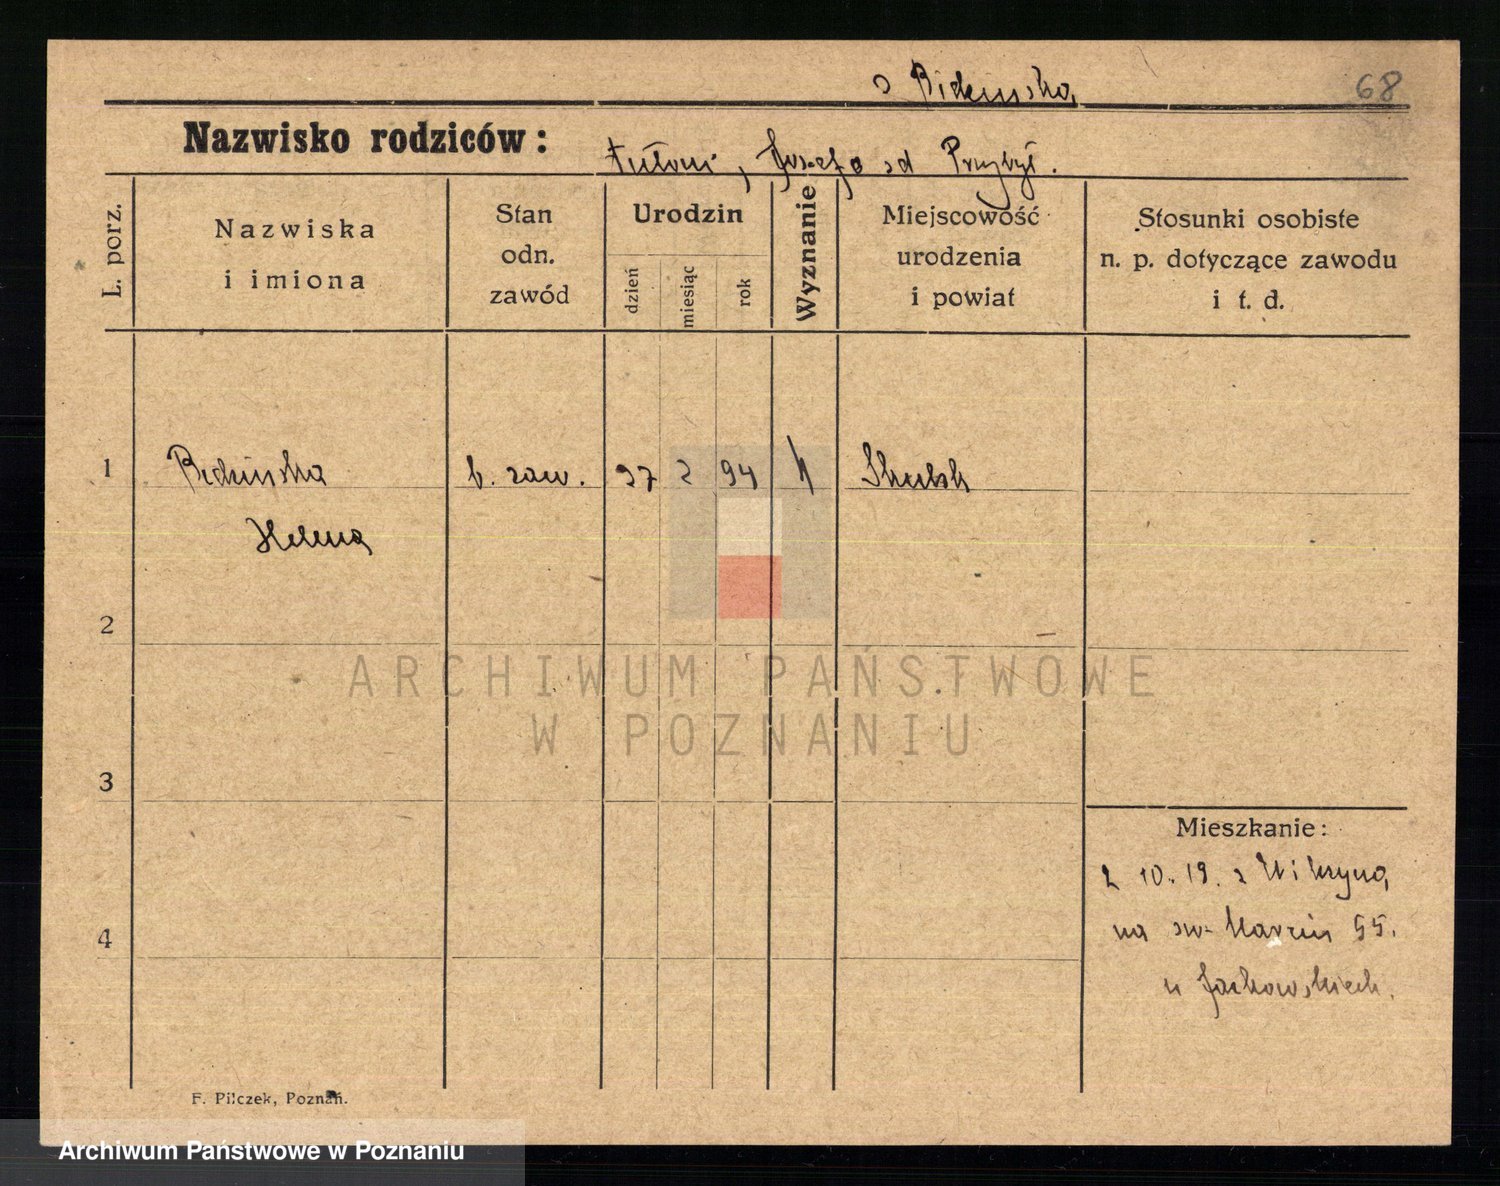 68
Nazwisko rodziców:
Antoni, Józefa od Przybył.
L. porz.
Nazwiska
i imiona
Stan
odn.
zawód
Urodzin
dzień
miesiąc
rok
Wyznanie
Miejscowość
urodzenia
i powiat
Stosunki osobiste
n. p. dotyczące zawodu
i t. d.
1
b. zaw. 27 2 94 Skulsk
Helena
2
ARCHIWUM PAŃSTWOWE
W POZNANIU
3
Mieszkanie:
2 10. 19. z
4
na św. Marcin 55.
u Jackowskiech.
F. Pilczek, Poznań.
Archiwum Państwowe w Poznaniu